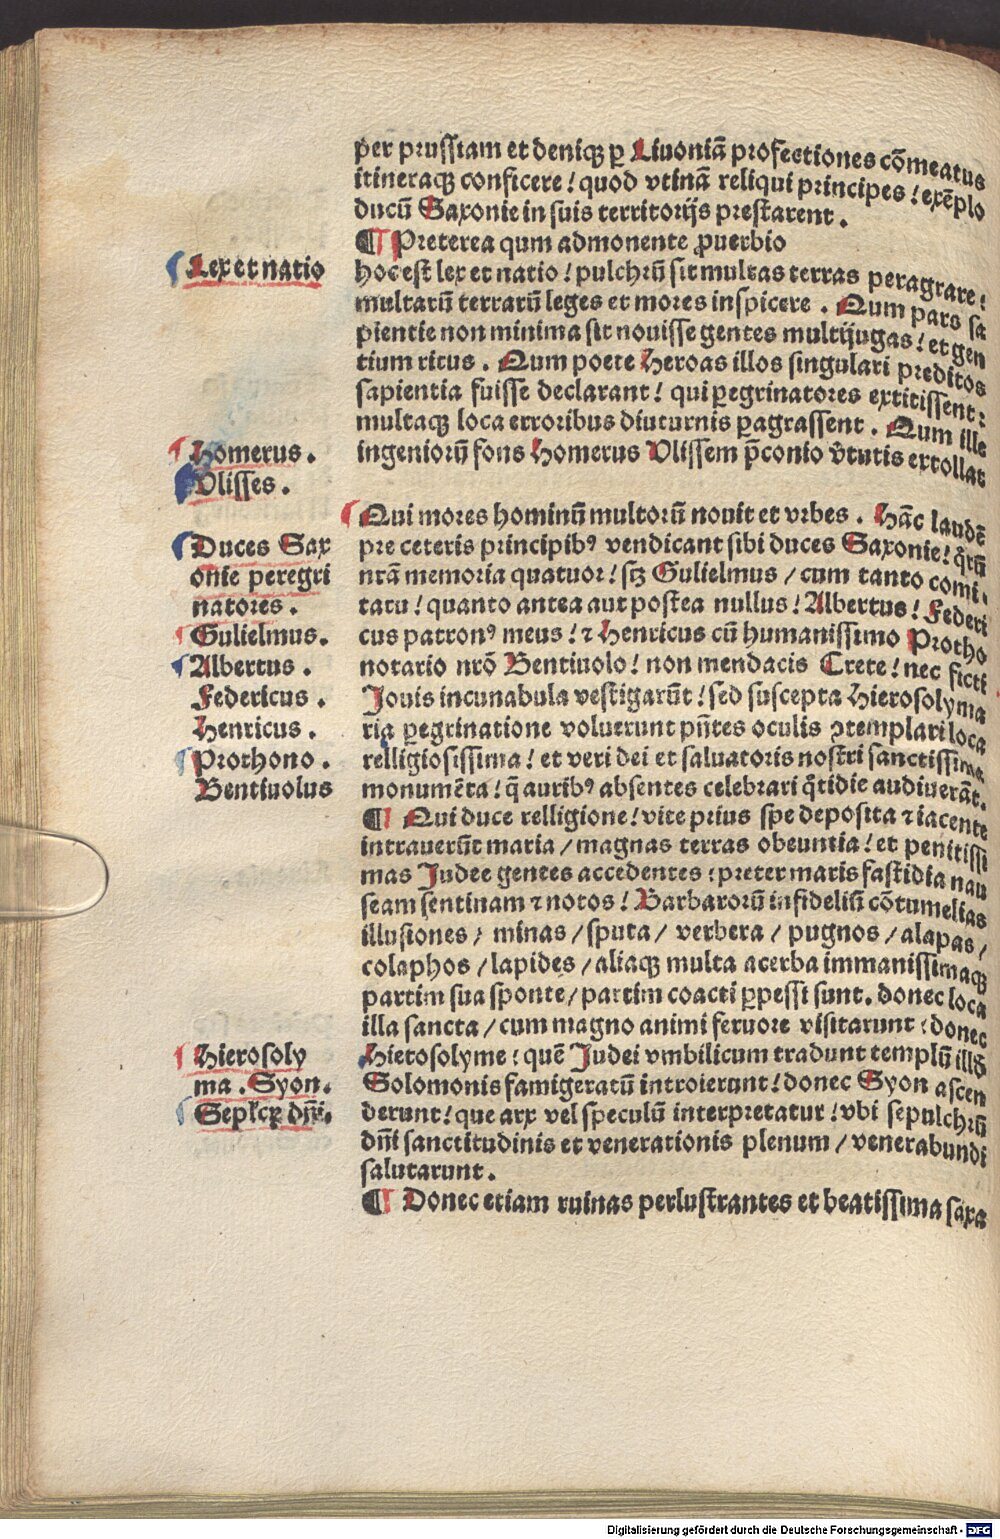 per prussiam et deniqꝫ ꝑ Liuoniā profectiones cōmeatus
itineraqꝫ conficere / quod vtinā reliqui principes / exēplo
ducū Saxonie in suis territorijs prestarent .
¶ Preterea qum admonente ꝓuerbio
Lex et natio
hoc est lex et natio / pulchrū sit multas terras peragrare /
multarū terrarū leges et mores inspicere . Qum pars sa
pientie non minima sit nouisse gentes multijugas / et gen
tium ritus . Qum poete Heroas illos singulari preditos
sapientia fuisse declarant / qui ꝑegrinatores extitissent /
multaqꝫ loca erroribus diuturnis ꝑagrassent . Qum ille
Homerus .
ingeniorū fons Homerus Vlissem p̄conio v̄tutis extollat
Vlisses .
Qui mores hominū multorū nouit et vrbes . Hāc laudē
Duces Sax
pre ceteris principibꝰ vendicant sibi duces Saxonie / q̄rū
onie peregri
nr̄ā memoria quatuor / sꝫ Gulielmus / cum tanto comi
natores .
tatu / quanto antea aut postea nullus / Albertus / Federi
Gulielmus .
cus patronꝰ meus / ⁊ Henricus cū humanissimo Protho
Albertus .
notario nr̄o Bentiuolo / non mendacis Crete / nec ficti
Federicus .
Jouis incunabula vestigarūt / sed suscepta Hierosolyma
Henricus .
ria ꝑegrinatione voluerunt pn̄tes oculis ꝯtemplari loca
Prothono .
relligiosissima / et veri dei et saluatoris nostri sanctissima
Bentiuolus
monumēta / q̄ auribꝰ absentes celebrari q̄tidie audiuerāt .
¶ Qui duce relligione / vite prius spe deposita ⁊ iacente
intrauerūt maria / magnas terras obeuntia / et penitissi
mas Judee gentes accedentes / preter maris fastidia nau
seam sentinam ⁊ notos / Barbarorū infideliū cōtumelias
illusiones / minas / sputa / verbera / pugnos / alapas /
colaphos / lapides / aliaqꝫ multa acerba immanissimaqꝫ
partim sua sponte / partim coacti ꝑpessi sunt . donec loca
illa sancta / cum magno animi feruore visitarunt / donec
Hierosoly
Hierosolyme / quē Judei vmbilicum tradunt templū illd̄
ma . Syon .
Solomonis famigeratū introierunt / donec Syon ascen
Sepl̄cꝝ dn̄i .
derunt / que arx vel speculū interpretatur / vbi sepulchrū
dn̄i sanctitudinis et venerationis plenum / venerabundi
salutarunt .
¶ Donec etiam ruinas perlustrantes et beatissima saxa
Digitalisierung gefördert durch die Deutsche Forschungsgemeinschaft - DFG